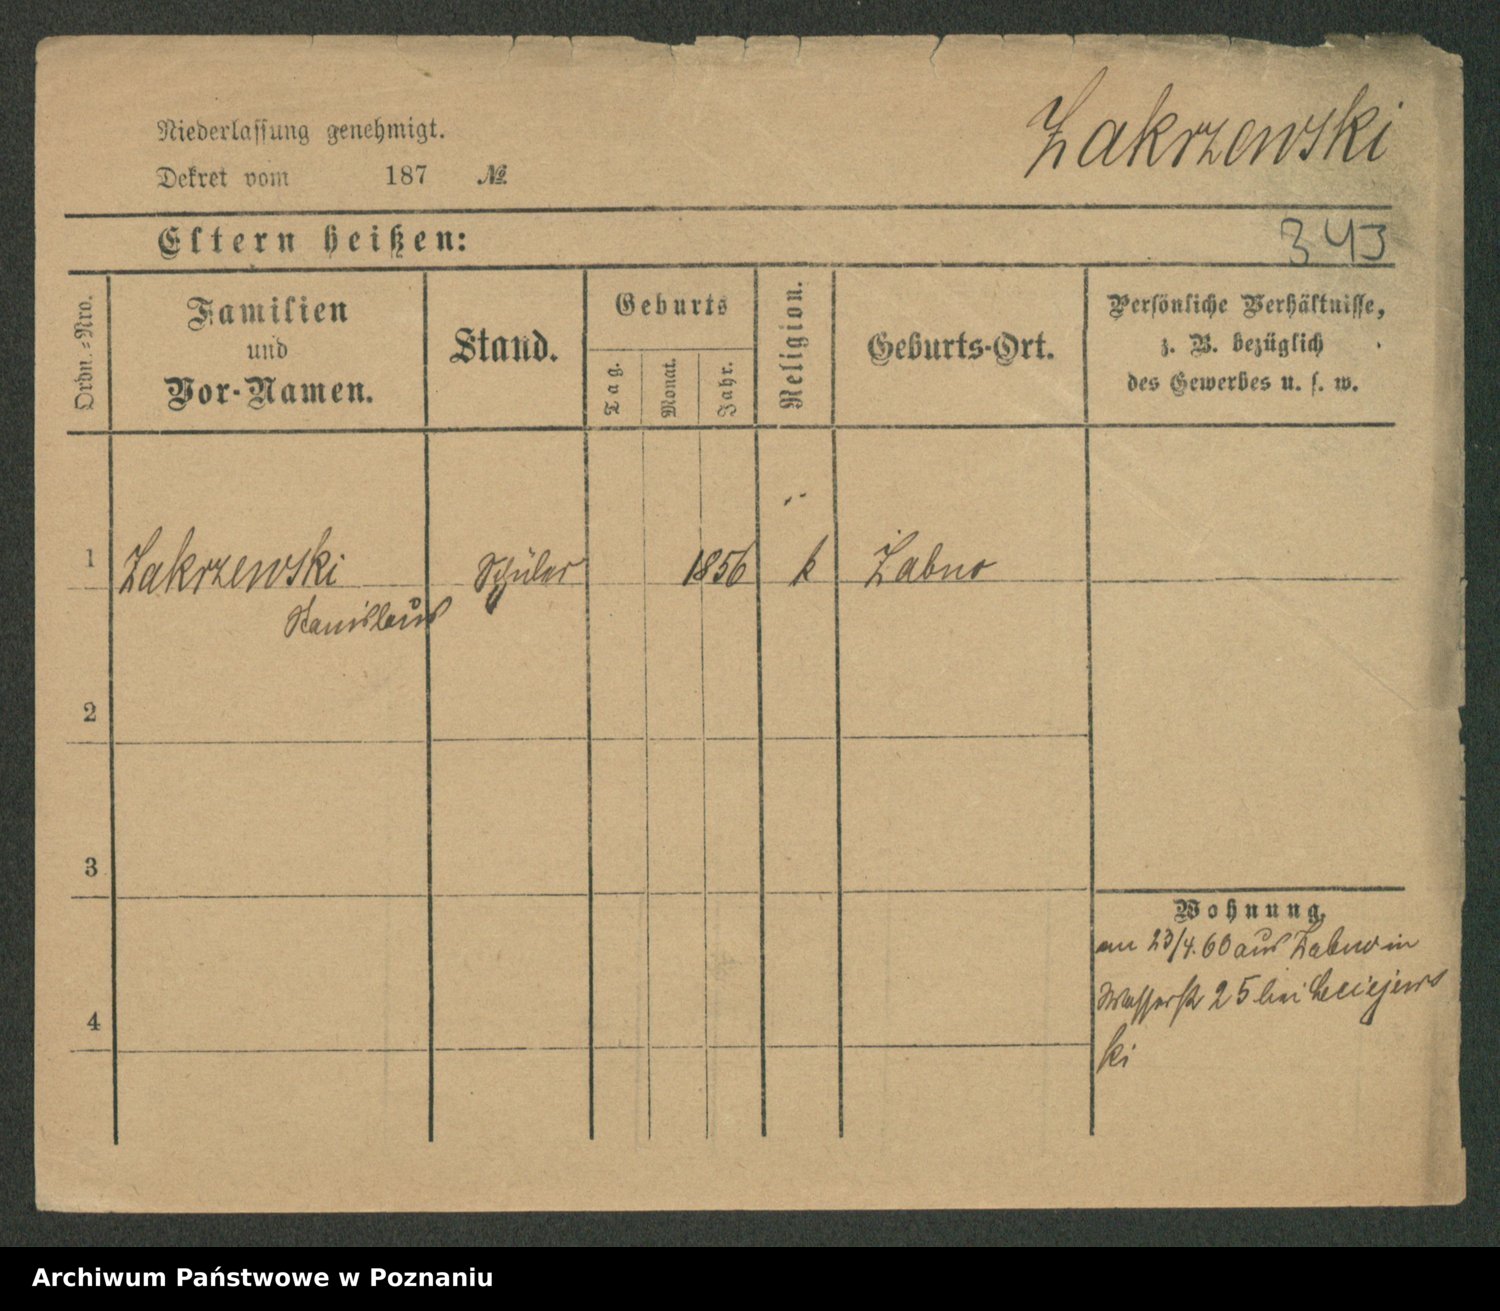 Niederlassung genehmigt.
Dekret vom 187 №
Zakrzewski
Eltern heißen:
343
Ordn.-Nro.
Familien
und
Vor-Namen.
Stand.
Geburts
Tag.
Monat.
Jahr.
Religion.
Geburts-Ort.
Persönliche Verhältnisse,
z. B. bezüglich
des Gewerbes u. s. w.
1 Zakrzewski Schüler 1856 k Zabno
Stanislaus
2
3
4
Wohnung.
am 23/4. 60 aus Zabno in
Wasserstr 25 bei Leciejews
ki
Archiwum Państwowe w Poznaniu